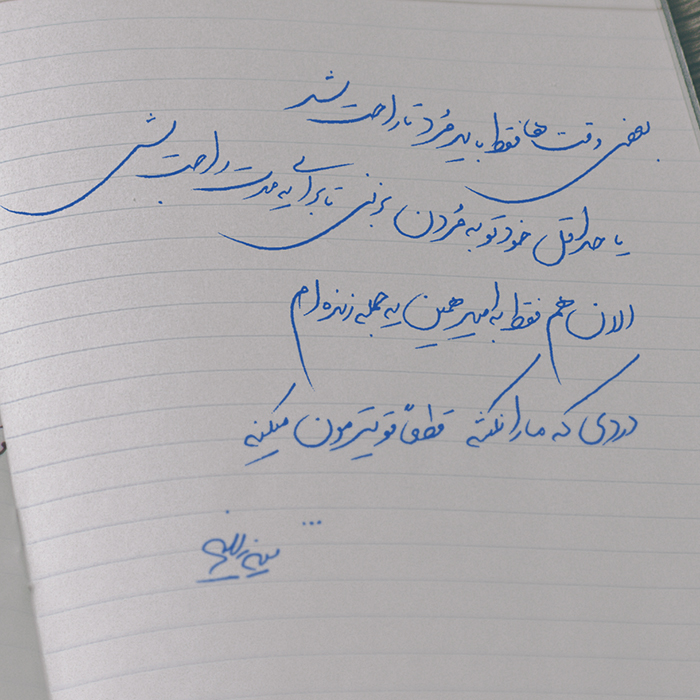 بعضی وقت ها فقط باید مُرد تا راحت شد
یا حداقل خودتو به مُردن بزنی تا برای یه مدت راحت بشی
الان هم فقط به امید همین یه جمله زنده ام
دردی که ما را نکشه قطعاً قویترمون میکنه
...